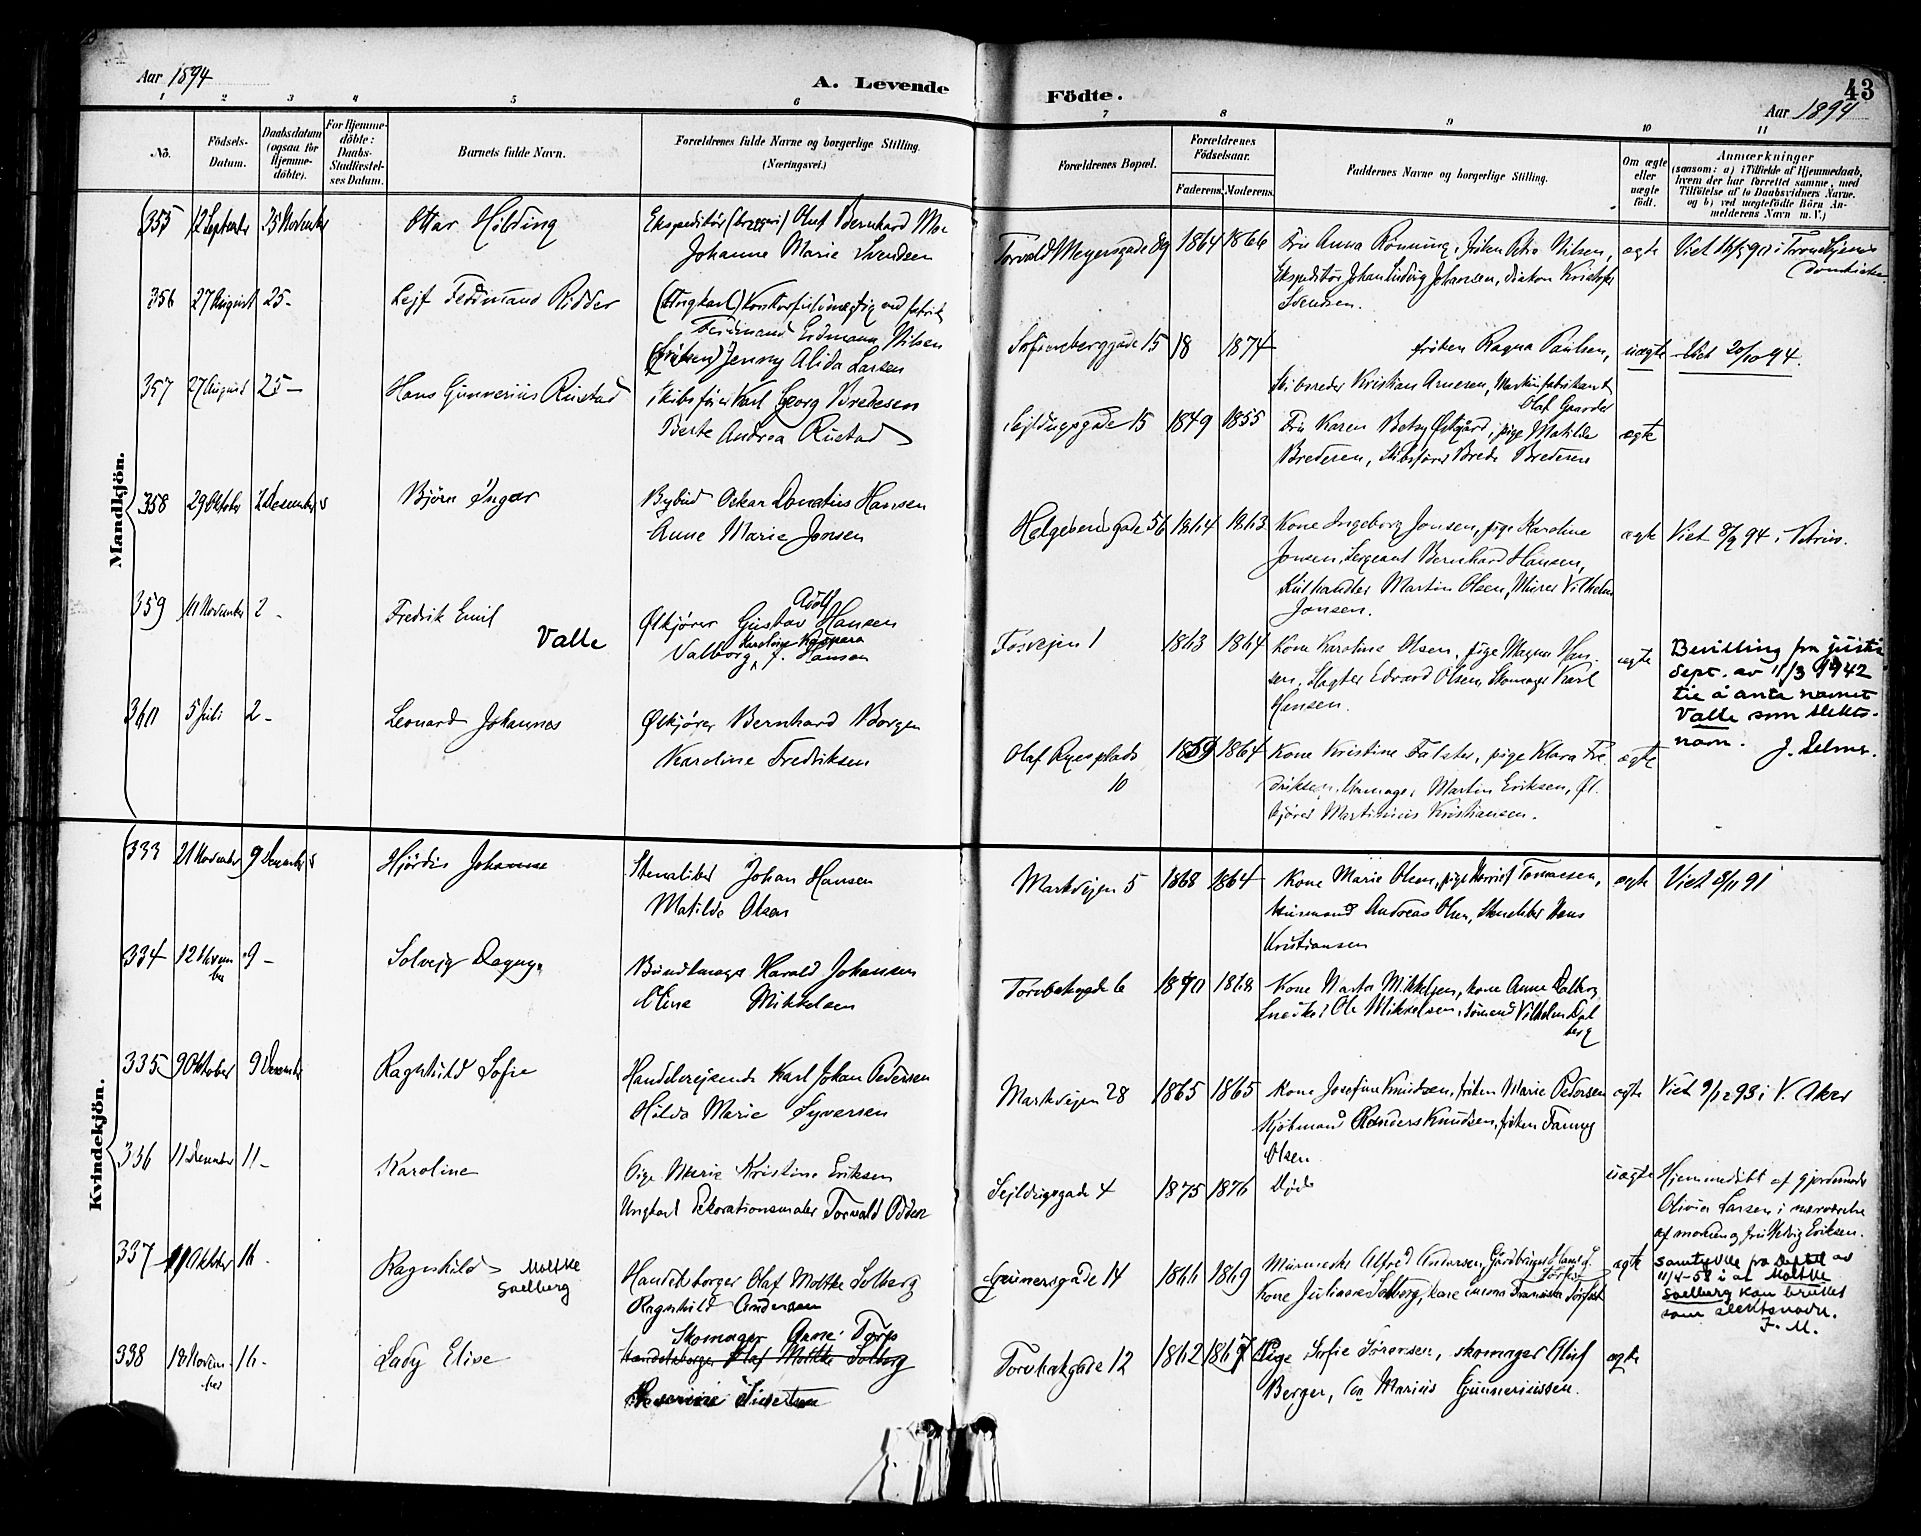 Aar 1894
A. Levende
Födte.
43
Aar 1894
1 2 3 4 5 6 7 8 9 10 11
No.
Födsels-Datum.
Daabsdatum (ogsaa for Hjemme-döbte).
For Hjemme-döbte: Daabs-Stadfæstel-ses Datum.
Barnets fulde Navn.
Forældrenes fulde Navne og borgerlige Stilling.
(Næringsvei.)
Forældrenes Bopæl.
Forældrenes Födselsaar.
Faderens. Moderens.
Faddernes Navne og borgerlige Stilling.
Om ægte eller uægte födt.
Anmærkninger
(saasom: a) i Tilfælde af Hjemmedaab, hvem der har forrettet samme, med Tilföielse af to Daabsvidners Navne, og b) ved uægtefödte Börn An-melderens Navn m. V.)
Mandkjön.
355 12 September 25 November
Ottar Hilding
Johanne Marie Svendsen
Torvald Meyersgade 89 1864 1866
Fru Anna Rønning, frøken Petra Nilsen,
Ekspeditør Johan Ludvig Johansen, Diakon Kristofer
Svendsen.
ægte
356 27 August 25 -
Lejf Ferdinand Ridder
Ferdinand Erdmann Nilsen
(frøken) Jenny Alida Larsen
Sofienberggade 15 18 1874
frøken Ragna Paulsen,
Skibsreder Kristian Arnesen, Maskinfabrikant
Olaf Gaarder
uægte
Viet 20/10 94.
357 27 August 25 -
Hans Gunnerius Rustad
Skibsfører Karl Georg Bredesen
Berte Andrea Rustad
Sejldugsgade 15 1849 1855
Fru Karen Betsy Østgård, pige Matilde
Bredesen, Skibsfører Brede Bredesen
ægte
358 29 Oktober 2 Desember
Bjørn Ingar
Bybud Oskar Donatius Hansen
Anne Marie Jonsen
Helgesensgade 56 1864 1863
Kone Ingeborg Jonsen, pige Karoline
Jonsen, Sergeant Bernhard Hansen,
Kulhandler Martin Olsen, Murer Vilhelm
Jonsen.
ægte
Viet 8/9 94 i Petrus.
359 11 November 2 -
Fredrik Emil
Valle
Adolf
Ølkjører Gustav Hansen
Karoline Kaspara
Valborg f. Hansen
Fosvejen 1 1863 1864
Kone Karoline Olsen, pige Magna Han-
sen, Slagter Edvard Olsen, Skomager Karl
Hansen.
ægte
Bevilling fra justis
dept. av 11/3 1942
til å anta navnet
Valle som slekts-
navn.
360 5 Juli 2 -
Leonard Johannes
Ølkjører Bernhard Borgen
Karoline Fredriksen
Olaf Ryesplads
10
1859 1864
Kone Kristine Falster, pige Klara Fre
driksen, Skomager Martin Eriksen, Øl-
kjører Martinius Kristiansen.
ægte
Kvindekjön.
333 21 November 9 Desember
Hjørdis Johanne
Stenaliber Johan Hansen
Matilde Olsen
Markvejen 5 1868 1864
Kone Marie Olsen, pige Harriet Tomassen,
Murmand Andreas Olsen, Stenaliber Hans
Kristiansen
ægte
Viet 8/11 91
334 12 Novem
ber
9 -
Solvejg Dagny
Bundtmager Harald Johansen
Oline Mikkelsen
Torvbakgade 6 1870 1868
Kone Marta Mikkelsen, kone Anna Dalberg
Snedker Ole Mikkelsen, Sømand Vilhelm Dal
berg
335 9 Oktober 9 Desember
Ragnhild Sofie
Handelsrejsende Karl Johan Pedersen
Hilda Marie Syversen
Markvejen 28 1865 1865
Kone Josefine Knudsen, frøken Marie Pedersen
Kjøbmand Randers Knudsen, frøken Fanny
Olsen
ægte
Viet 9/12 93 i V. Aker
336 11 Desember 11 -
Karoline
Pige Marie Kristine Eriksen
Ungkarl Dekorationsmaler Torvald Odden
Sejldugsgade 4 1875 1876
Død
uægte
Hjemmedøbt af gjordmoder
Olivia Larsen i nærværelse
af moderen og fru Hedvig Eriksen.
337 19 Oktober 16 -
Ragnhild
Moltke
Soelberg
Handelsborger Olaf Moltke Solberg
Ragnhild Andersen
Grünersgade 14 1866 1869
Kone Juliane Solberg, kone Emma Franciska
ægte
samtykke fra Deptet av
11/4-58 i at Moltke
Soelberg kan brukes
som slektsnavn.
F. M.
338 18 Novem
ber
16 -
Lady Elise
Skomager
Handelsborger Olaf Moltke Solberg
Torvbakgade 12 1862 1867
Pige Sofie Sørensen, skomager Oluf
Berger, Marius Gunneriussen.
ægte